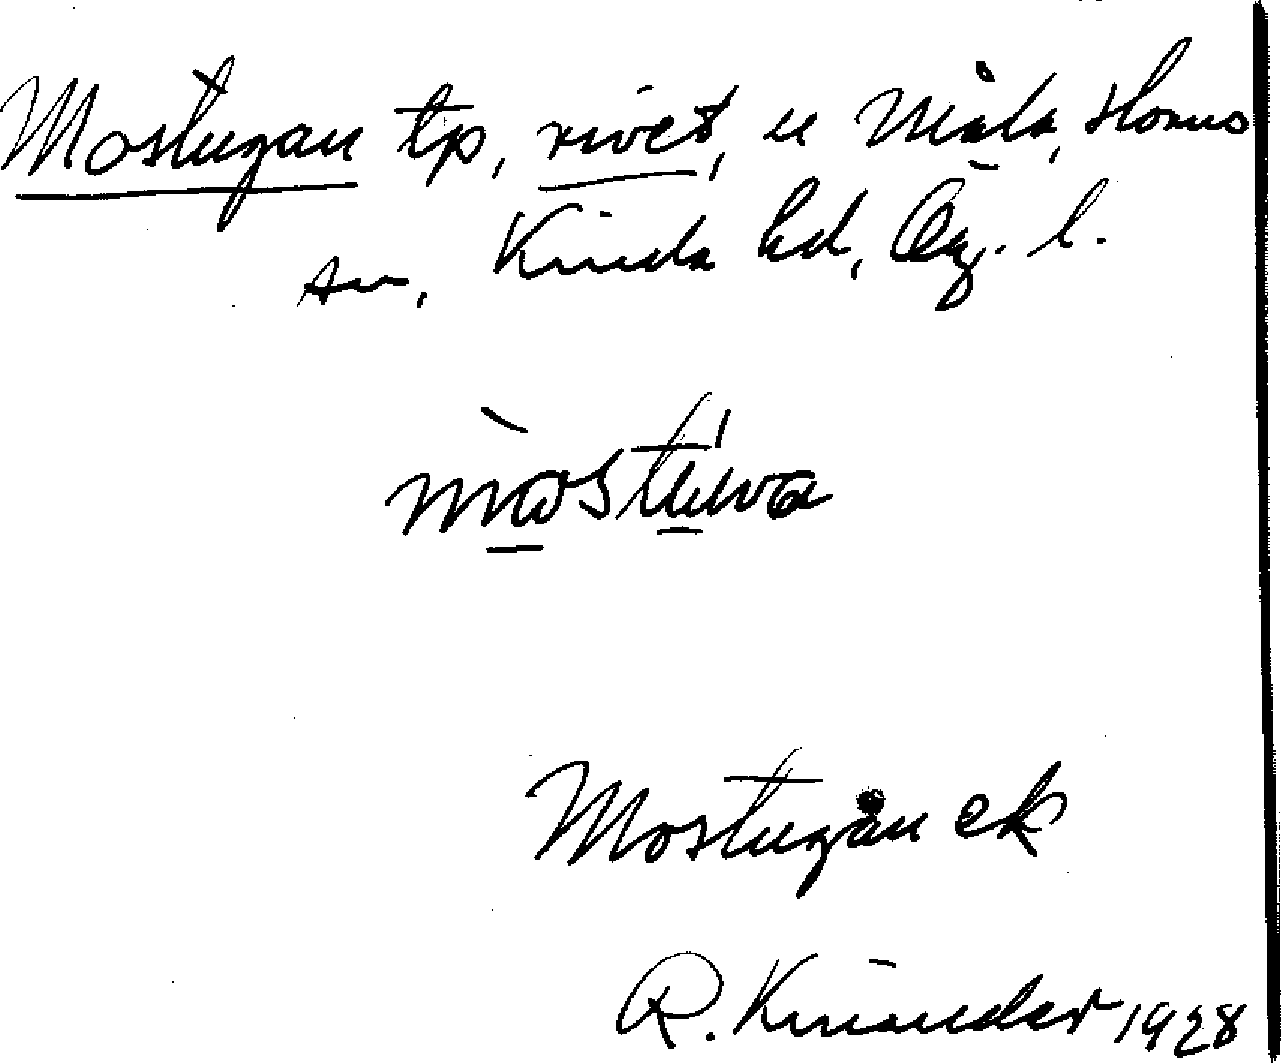 Mostugan tp, rivet, u Mäla, Sloms
sn, Kinda hd, Ög. l.
mòstúwa
Mostugan ek
R. Kinander 1928